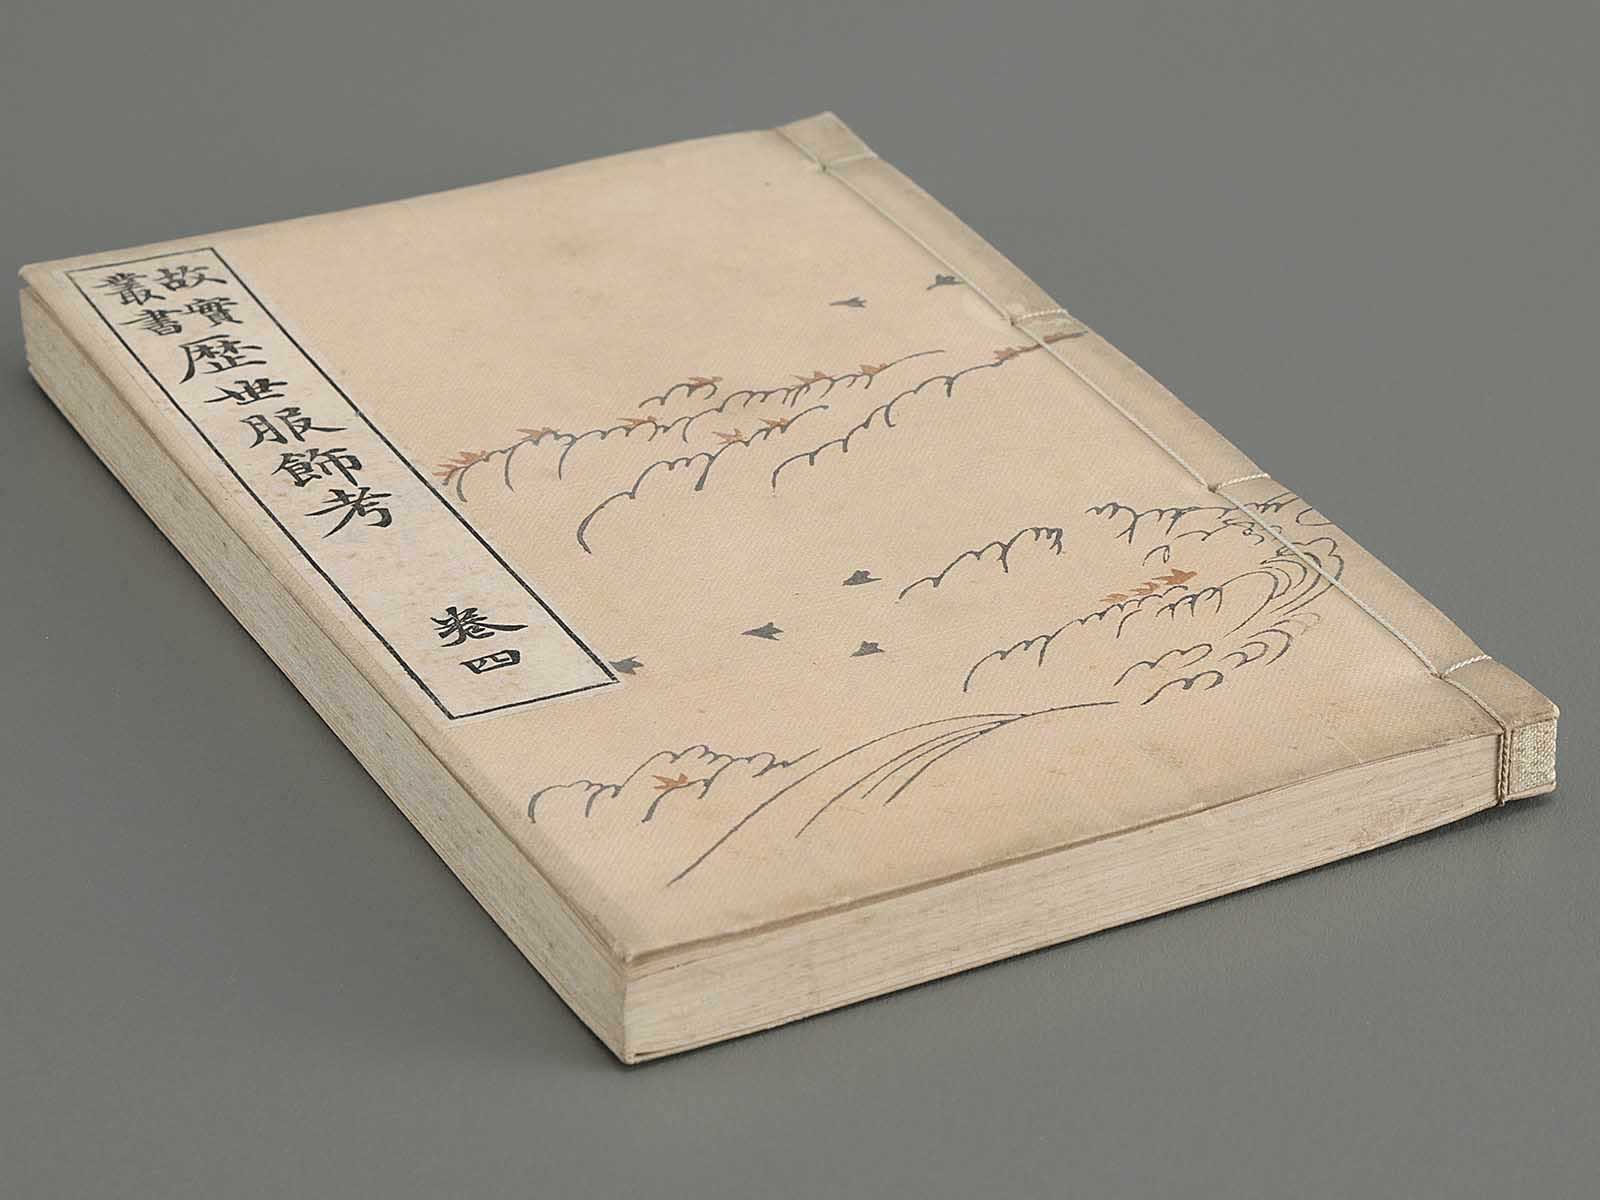 故實
叢書
歴世服飾考
卷四